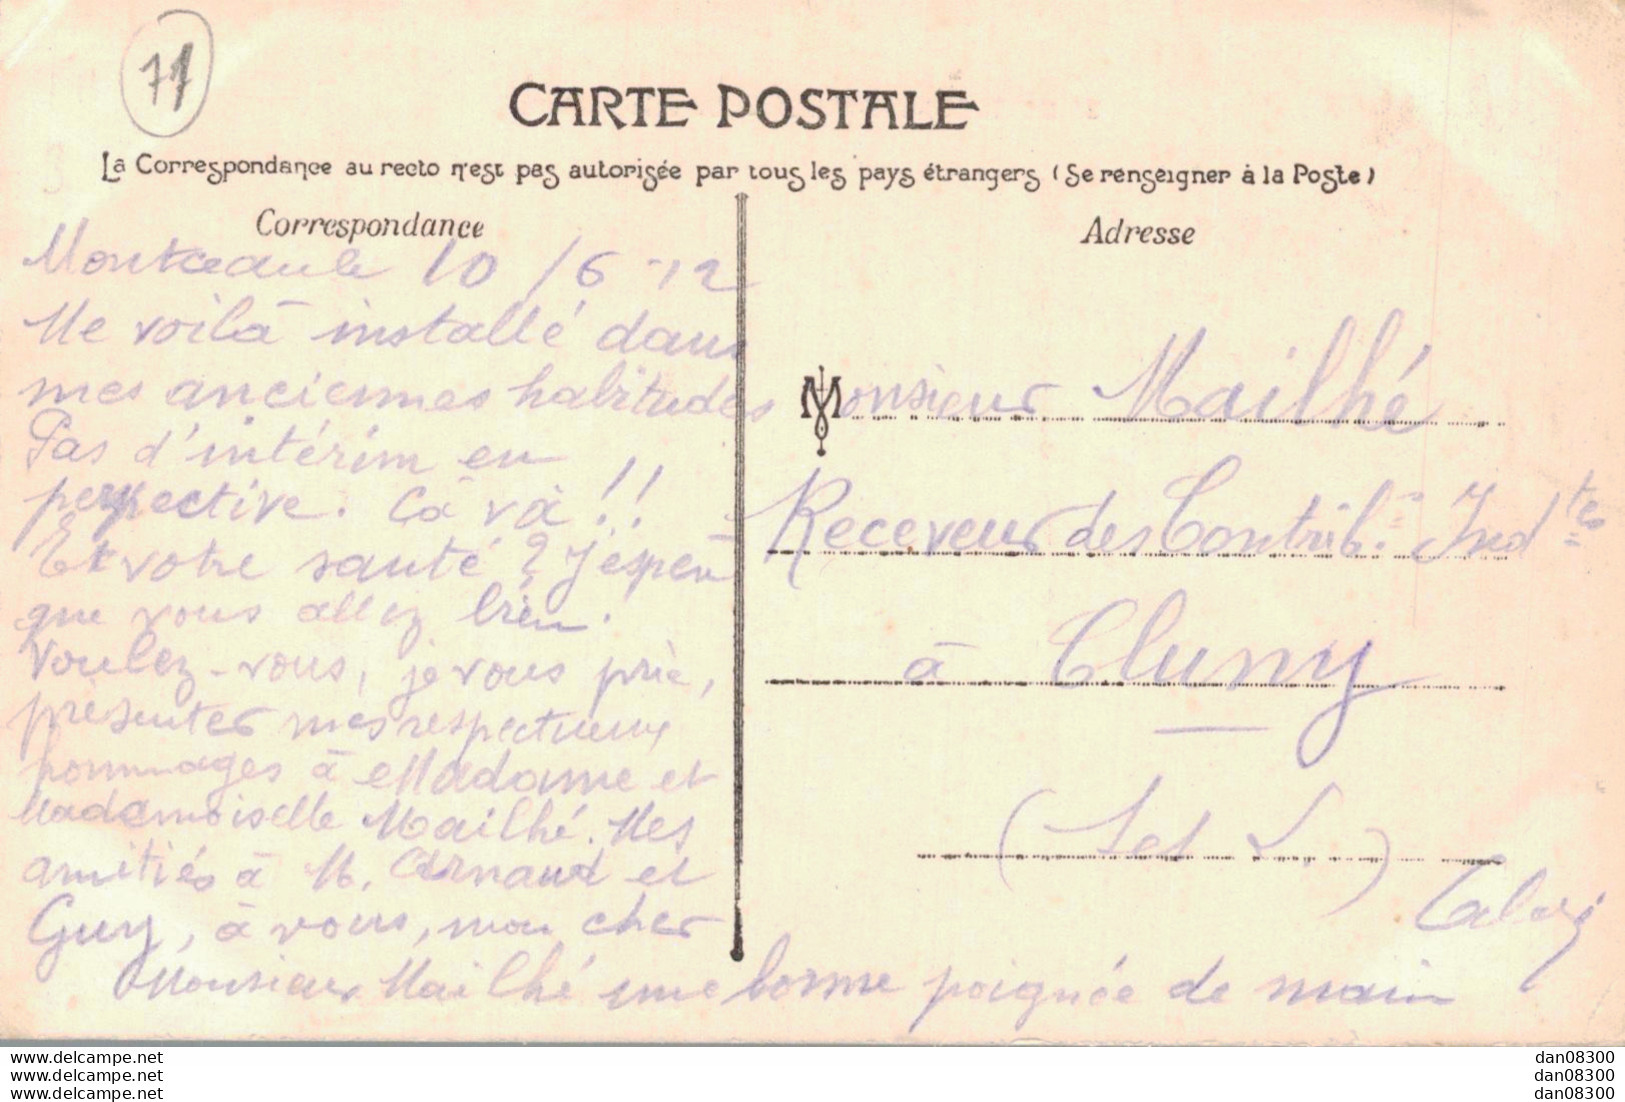 77
CARTE POSTALE
La Correspondance au recto n'est pas autorisée par tous les pays étrangers (Se renseigner à la Poste)
Correspondance
10/6-12
Me voilà installé dans
mes anciennes habitudes
Pas d'intérim en
perspective. Cà và !!
Et votre santé ? J'espère
que vous allez bien.
Voulez-vous, je vous prie,
présenter mes respectueux
hommages à Madame et
Mademoiselle Mailhé. Mes
amitiés à M. Arnaud et
Guy, à vous, mon cher
Monsieur Mailhé une bonne poignée de main
Adresse
Monsieur Mailhé
Receveur des Contrib.s Indtes
à Cluny
(S et L.)
www.delcampe.net
www.delcampe.net
www.delcampe.net
dan08300
dan08300
dan08300